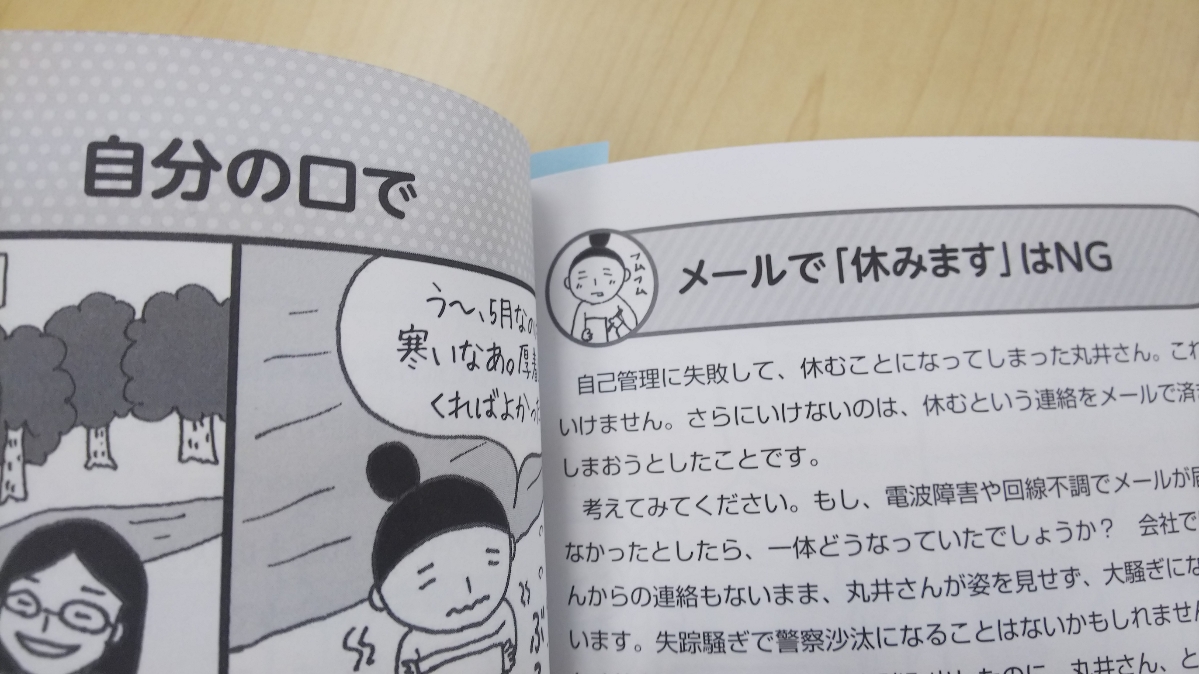 自分の口で
う〜、5月なの
寒いなあ。厚着
くればよかった
ぶ
フムフム
メールで「休みます」はNG
自己管理に失敗して、休むことになってしまった丸井さん。これ
いけません。さらにいけないのは、休むという連絡をメールで済ま
しまおうとしたことです。
考えてみてください。もし、電波障害や回線不調でメールが届
なかったとしたら、一体どうなっていたでしょうか？　会社で
んからの連絡もないまま、丸井さんが姿を見せず、大騒ぎにな
います。失踪騒ぎで警察沙汰になることはないかもしれません
したのに、丸井さん、と